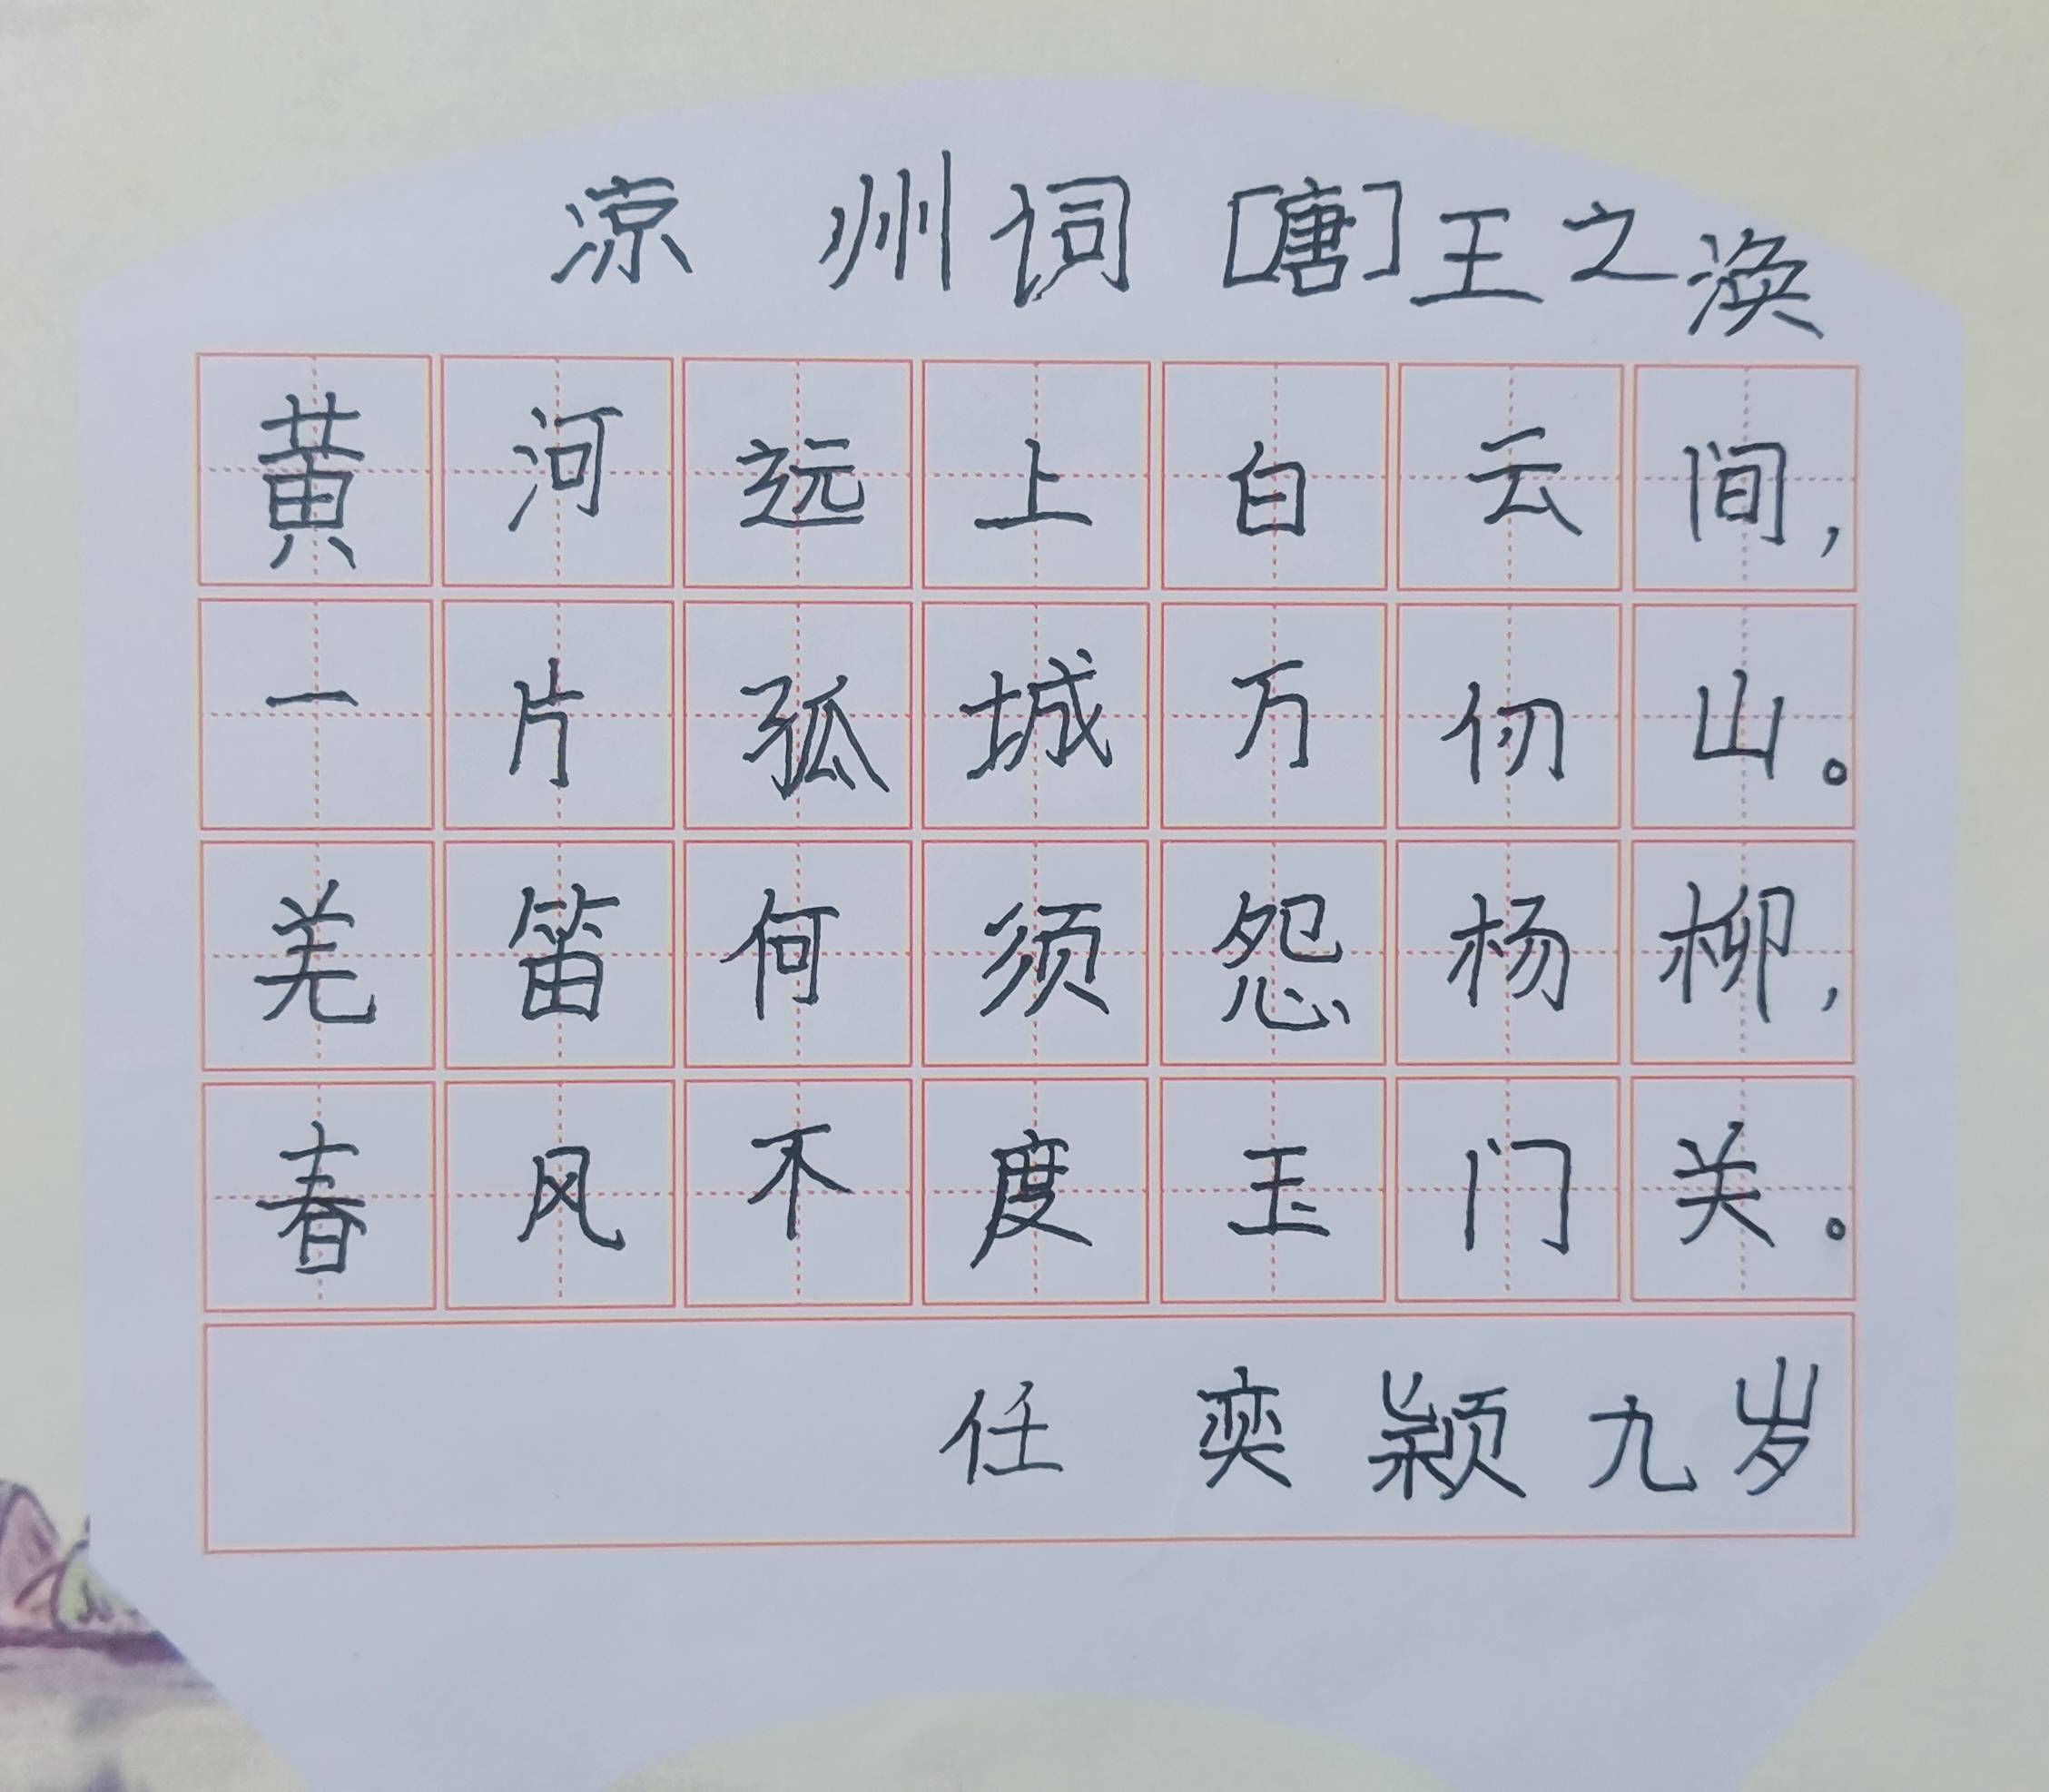 凉州词[唐]王之涣
黄河远上白云间,
一片孤城万仞山。
羌笛何须怨杨柳,
春风不度玉门关。
任奕颖九岁